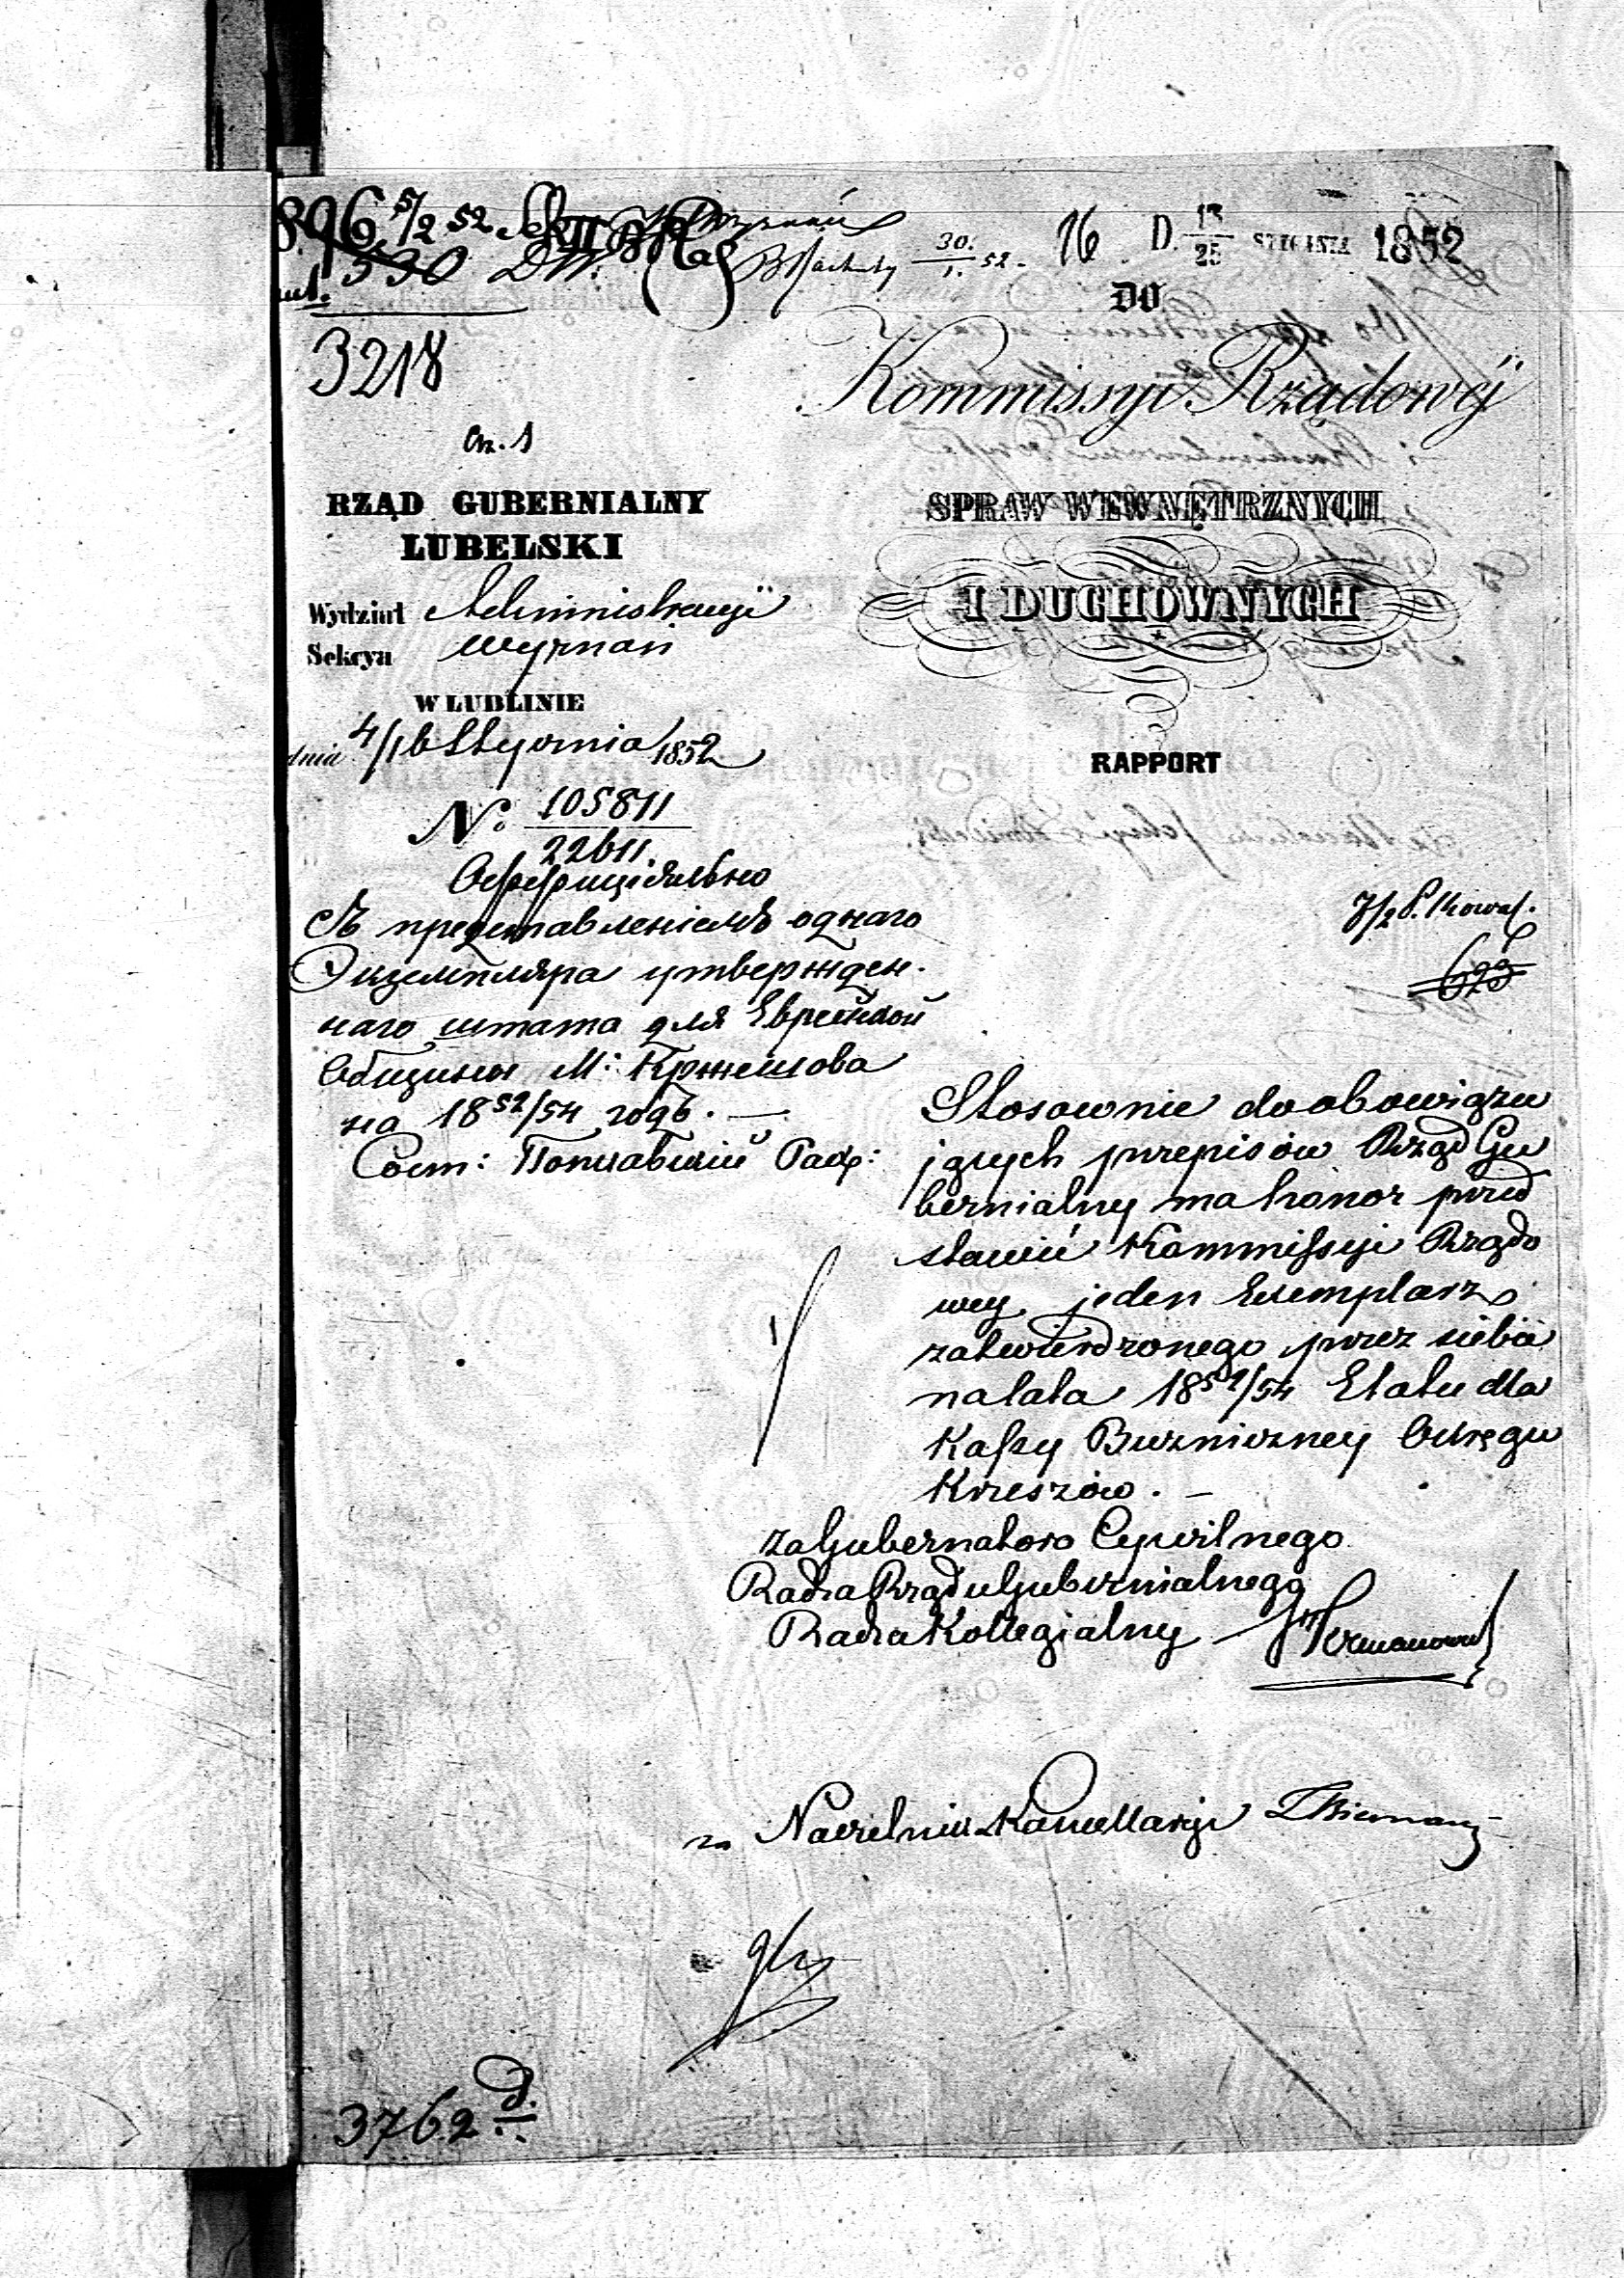 896 5/2 52
530
30./1. 52. 16 D. 13/25 STYCZNIA 1852
3218
DO
Kommissyi Rządowéj
SPRAW WEWNĘTRZNYCH
I DUCHOWNYCH
RAPPORT
RZĄD GUBERNIALNY
LUBELSKI
Wydział Administracyi
Sekcya Wyznań
W LUBLINIE
dnia 4/16 Stycznia 1852
No. 105811/22611.
Оффиціально
Съ представленіемъ однаго
Экземпляра утвержден-
наго штата для Еврейской
Общины М: Кржешова
на 18 52/54 годъ. —
623
Stosownie do obowiązu
jących przepisów Rząd Gu
bernialny ma honor przed
stawić Kommissyi Rządo
wey, jeden Exemplarz
zatwierdzonego przez siebie
na lata 18 52/54 Etatu dla
Kassy Bużniczney Okręgu
Krzeszów. —
za Gubernatora Cywilnego
Radca Rządu Gubernialnego
Radca Kollegialny
za Naczelnik Kancellaryi
3762 D.